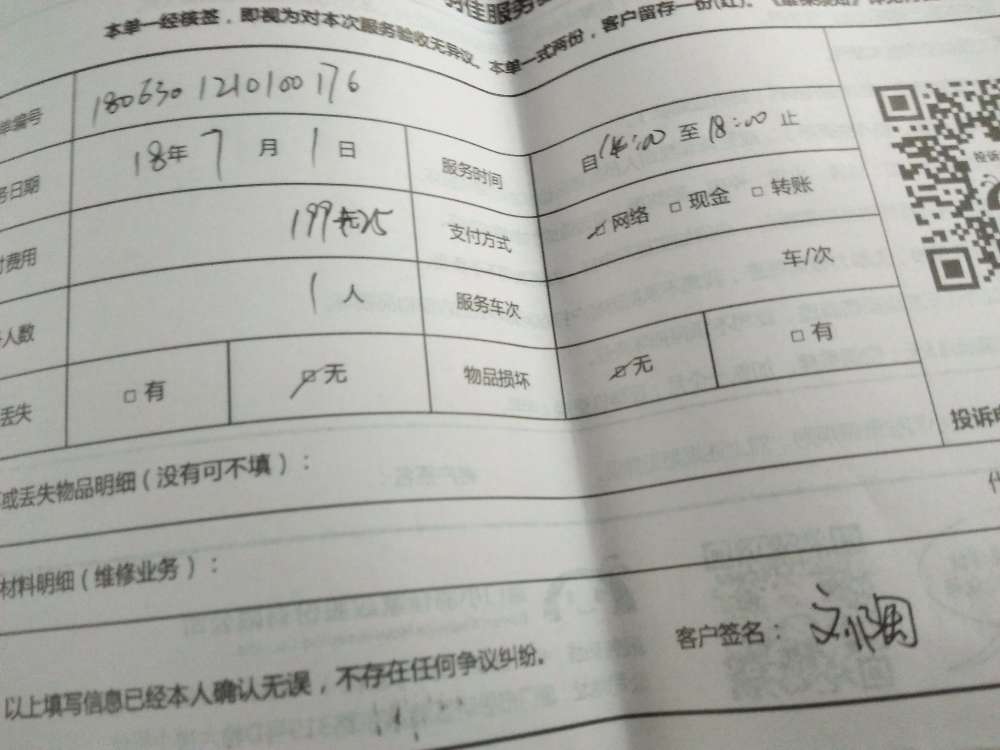 佳服务
本单一经核签，即视为对本次服务验收无异议。本单一式两份，客户留存一份(红)。
单编号 1806301210100176
务日期 18年 7 月 1 日 服务时间 自 14:00 至 18:00 止
付费用 199 支付方式 网络 □ 现金 □ 转账
人数 1 人 服务车次 车/次
丢失 □ 有 □ 无 物品损坏 □ 无 □ 有
投诉
或丢失物品明细（没有可不填）：
材料明细（维修业务）：
客户签名：
以上填写信息已经本人确认无误，不存在任何争议纠纷。